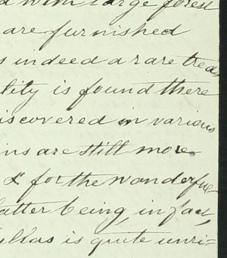 d with large forest
are furnished
s indeed a rare trea
lity is found there
iscovered in various
ins are still more
& for the wonderful
latter being, in fact,
is quite unri-